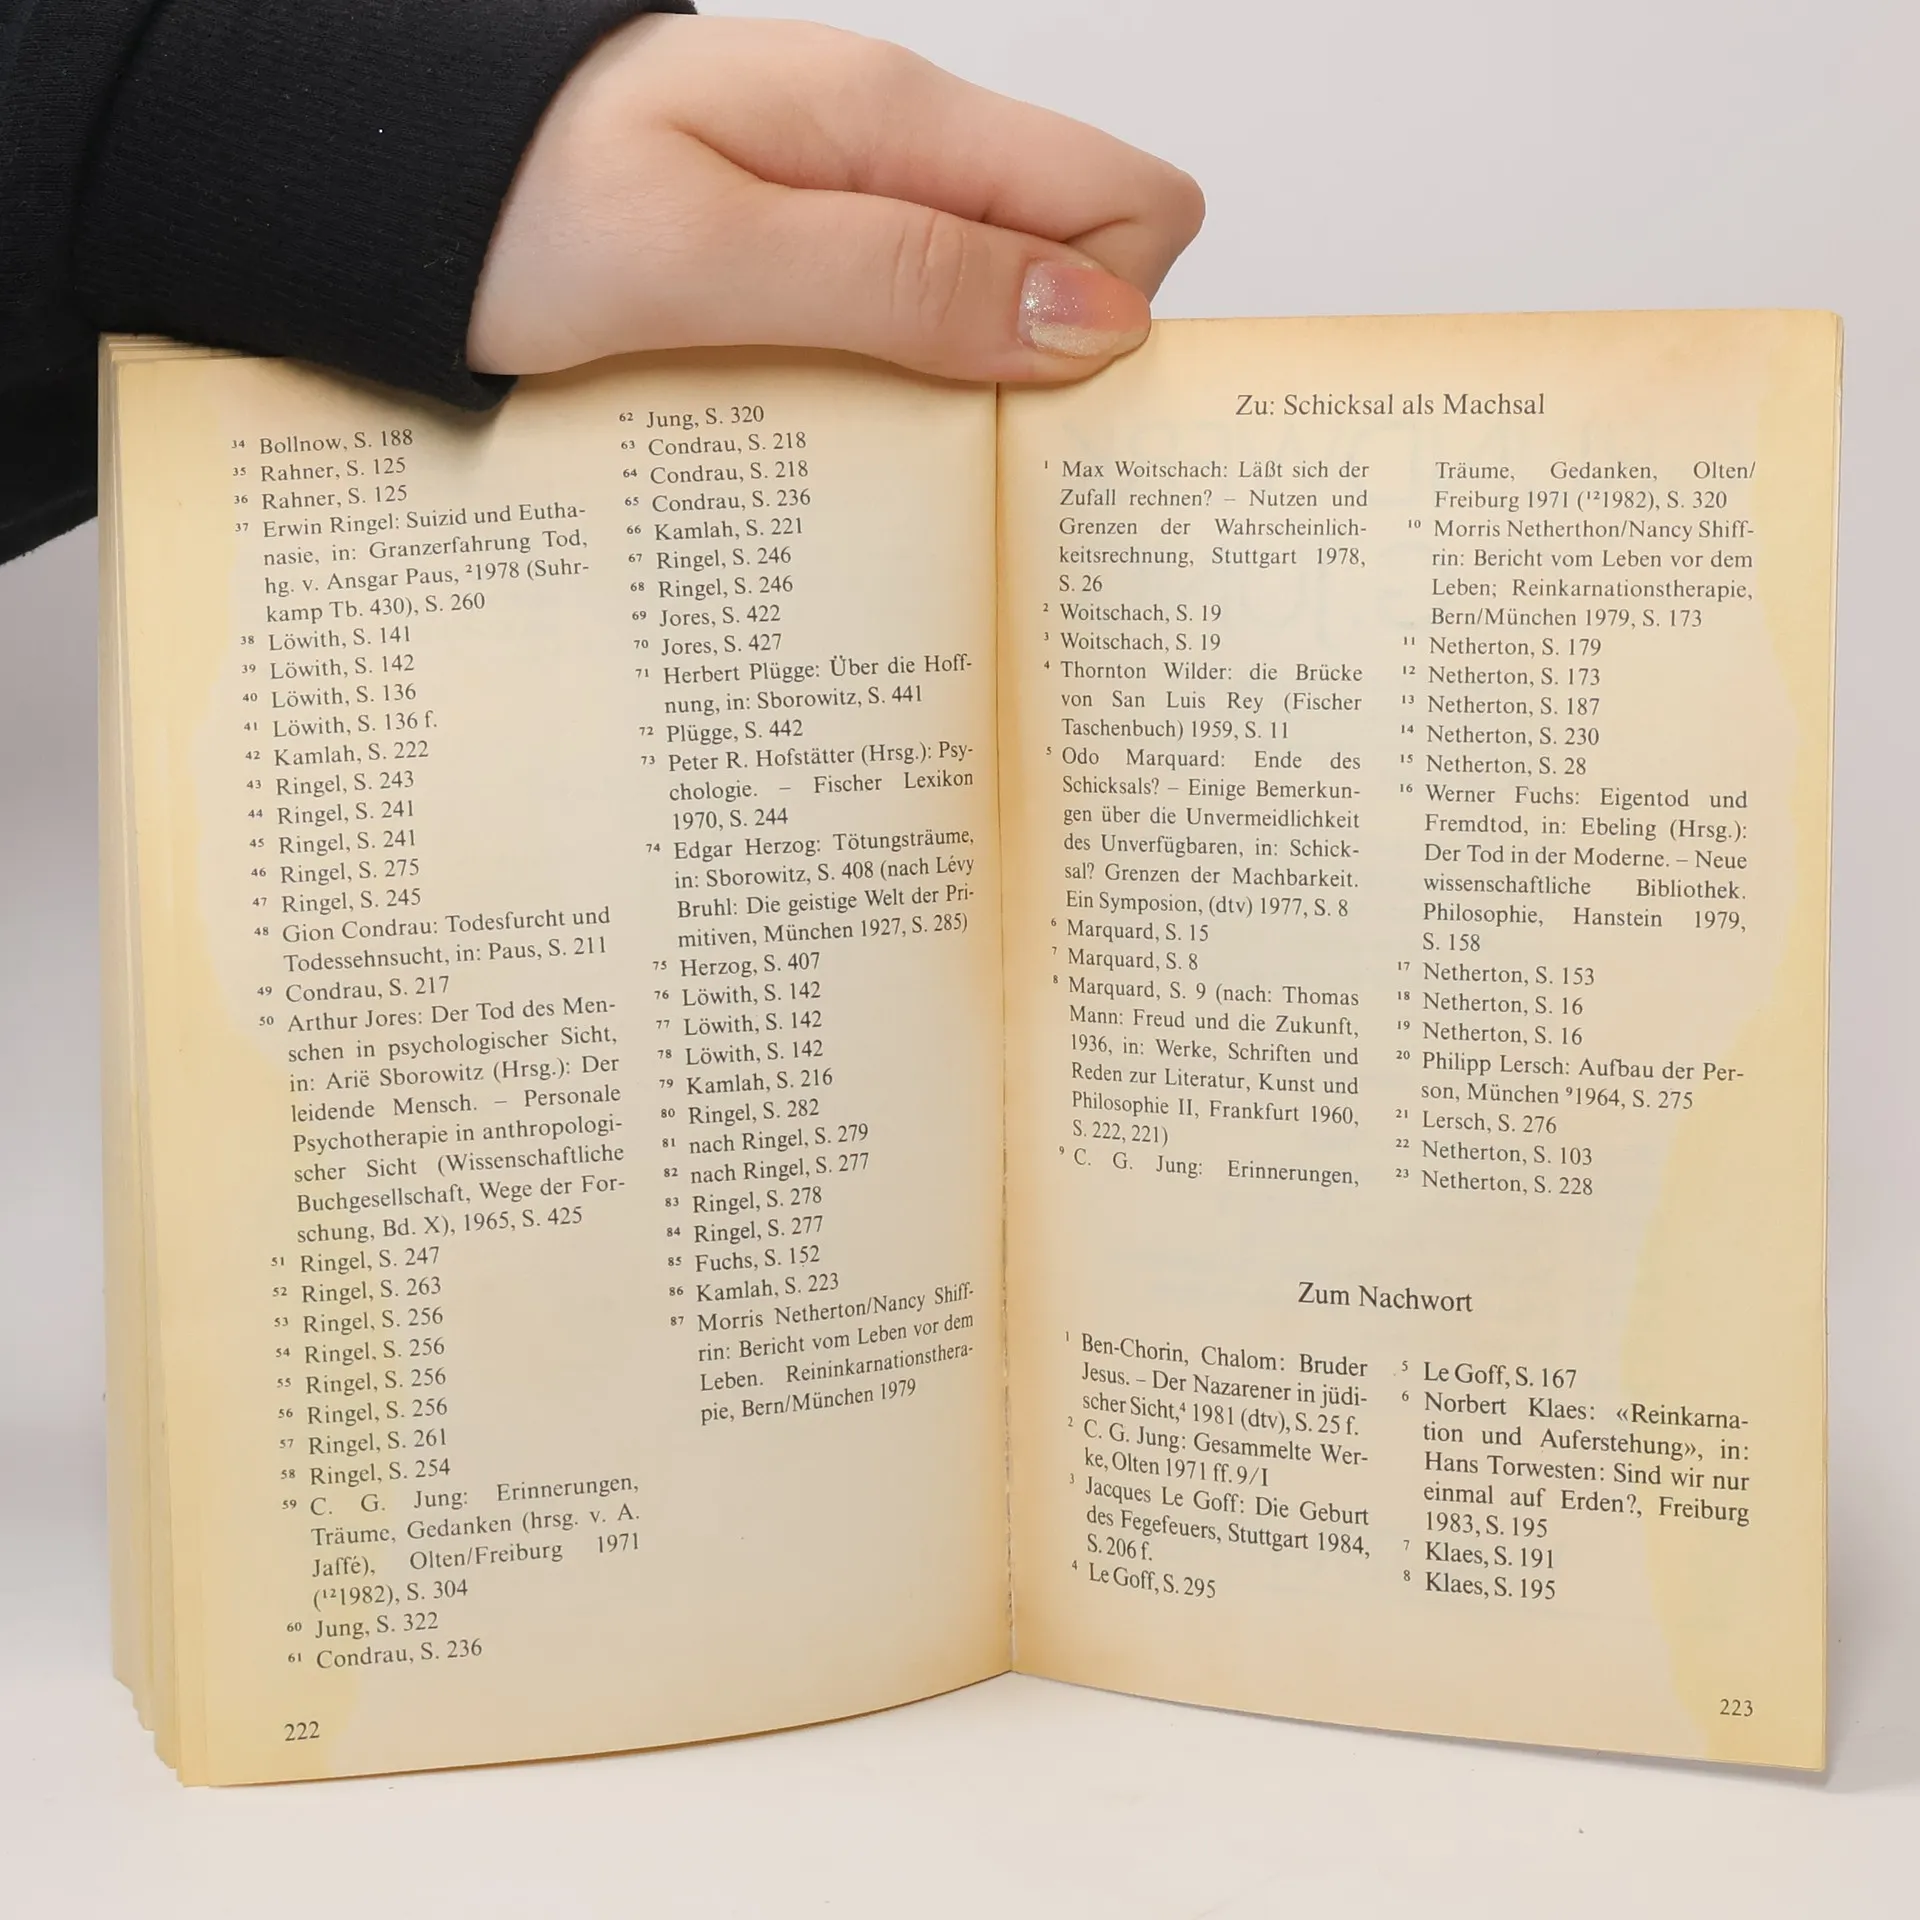 34 Bollnow, S. 188
35 Rahner, S. 125
36 Rahner, S. 125
37 Erwin Ringel: Suizid und Eutha-
nasie, in: Granzerfahrung Tod,
hg. v. Ansgar Paus, ²1978 (Suhr-
kamp Tb. 430), S. 260
38 Löwith, S. 141
39 Löwith, S. 142
40 Löwith, S. 136
41 Löwith, S. 136 f.
42 Kamlah, S. 222
43 Ringel, S. 243
44 Ringel, S. 241
45 Ringel, S. 241
46 Ringel, S. 275
47 Ringel, S. 245
48 Gion Condrau: Todesfurcht und
Todessehnsucht, in: Paus, S. 211
49 Condrau, S. 217
50 Arthur Jores: Der Tod des Men-
schen in psychologischer Sicht,
in: Arië Sborowitz (Hrsg.): Der
leidende Mensch. – Personale
Psychotherapie in anthropologi-
scher Sicht (Wissenschaftliche
Buchgesellschaft, Wege der For-
schung, Bd. X), 1965, S. 425
51 Ringel, S. 247
52 Ringel, S. 263
53 Ringel, S. 256
54 Ringel, S. 256
55 Ringel, S. 256
56 Ringel, S. 256
57 Ringel, S. 261
58 Ringel, S. 254
59 C. G. Jung: Erinnerungen,
Träume, Gedanken (hrsg. v. A.
Jaffé), Olten/Freiburg 1971
(¹²1982), S. 304
60 Jung, S. 322
61 Condrau, S. 236
62 Jung, S. 320
63 Condrau, S. 218
64 Condrau, S. 218
65 Condrau, S. 236
66 Kamlah, S. 221
67 Ringel, S. 246
68 Ringel, S. 246
69 Jores, S. 422
70 Jores, S. 427
71 Herbert Plügge: Über die Hoff-
nung, in: Sborowitz, S. 441
72 Plügge, S. 442
73 Peter R. Hofstätter (Hrsg.): Psy-
chologie. – Fischer Lexikon
1970, S. 244
74 Edgar Herzog: Tötungsträume,
in: Sborowitz, S. 408 (nach Lévy
Bruhl: Die geistige Welt der Pri-
mitiven, München 1927, S. 285)
75 Herzog, S. 407
76 Löwith, S. 142
77 Löwith, S. 142
78 Löwith, S. 142
79 Kamlah, S. 216
80 Ringel, S. 282
81 nach Ringel, S. 279
82 nach Ringel, S. 277
83 Ringel, S. 278
84 Ringel, S. 277
85 Fuchs, S. 152
86 Kamlah, S. 223
87 Morris Netherton/Nancy Shiff-
rin: Bericht vom Leben vor dem
Leben. Reininkarnationsthera-
pie, Bern/München 1979
222
Zu: Schicksal als Machsal
1 Max Woitschach: Läßt sich der
Zufall rechnen? – Nutzen und
Grenzen der Wahrscheinlich-
keitsrechnung, Stuttgart 1978,
S. 26
2 Woitschach, S. 19
3 Woitschach, S. 19
4 Thornton Wilder: die Brücke
von San Luis Rey (Fischer
Taschenbuch) 1959, S. 11
5 Odo Marquard: Ende des
Schicksals? – Einige Bemerkun-
gen über die Unvermeidlichkeit
des Unverfügbaren, in: Schick-
sal? Grenzen der Machbarkeit.
Ein Symposion, (dtv) 1977, S. 8
6 Marquard, S. 15
7 Marquard, S. 8
8 Marquard, S. 9 (nach: Thomas
Mann: Freud und die Zukunft,
1936, in: Werke, Schriften und
Reden zur Literatur, Kunst und
Philosophie II, Frankfurt 1960,
S. 222, 221)
9 C. G. Jung: Erinnerungen,
Träume, Gedanken, Olten/
Freiburg 1971 (¹²1982), S. 320
10 Morris Netherthon/Nancy Shiff-
rin: Bericht vom Leben vor dem
Leben; Reinkarnationstherapie,
Bern/München 1979, S. 173
11 Netherton, S. 179
12 Netherton, S. 173
13 Netherton, S. 187
14 Netherton, S. 230
15 Netherton, S. 28
16 Werner Fuchs: Eigentod und
Fremdtod, in: Ebeling (Hrsg.):
Der Tod in der Moderne. – Neue
wissenschaftliche Bibliothek.
Philosophie, Hanstein 1979,
S. 158
17 Netherton, S. 153
18 Netherton, S. 16
19 Netherton, S. 16
20 Philipp Lersch: Aufbau der Per-
son, München ⁹1964, S. 275
21 Lersch, S. 276
22 Netherton, S. 103
23 Netherton, S. 228
Zum Nachwort
1 Ben-Chorin, Chalom: Bruder
Jesus. – Der Nazarener in jüdi-
scher Sicht,⁴ 1981 (dtv), S. 25 f.
2 C. G. Jung: Gesammelte Wer-
ke, Olten 1971 ff. 9/I
3 Jacques Le Goff: Die Geburt
des Fegefeuers, Stuttgart 1984,
S. 206 f.
4 Le Goff, S. 295
5 Le Goff, S. 167
6 Norbert Klaes: «Reinkarna-
tion und Auferstehung», in:
Hans Torwesten: Sind wir nur
einmal auf Erden?, Freiburg
1983, S. 195
7 Klaes, S. 191
8 Klaes, S. 195
223